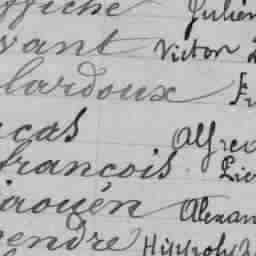 ffiche Julien
vant Victor
lardoux Fr
cas Alfred
francois Lie
iaouën Alexan
cendre Hippoly